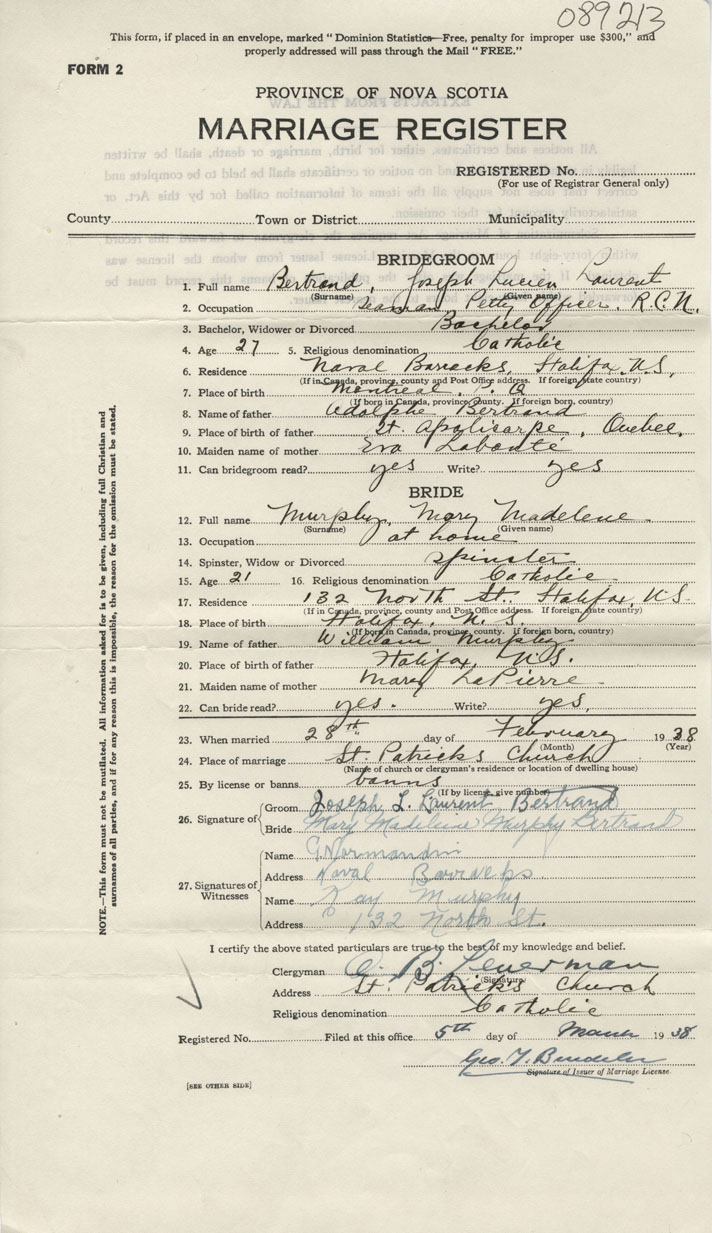 089213
This form, if placed in an envelope, marked "Dominion Statistics—Free, penalty for improper use $300," and
properly addressed will pass through the Mail "FREE."
FORM 2
PROVINCE OF NOVA SCOTIA
MARRIAGE REGISTER
REGISTERED No.
(For use of Registrar General only)
County Town or District Municipality
BRIDEGROOM
1. Full name Bertrand, Joseph Lucien Laurent
(Surname) (Given name)
2. Occupation Seaman, Petty Officer. R.C.N.
3. Bachelor, Widower or Divorced Bachelor
4. Age 27 5. Religious denomination Catholic
6. Residence Naval Barracks, Halifax, N.S,
(If in Canada, province, county and Post Office address. If foreign, state country)
7. Place of birth Montreal, P.Q
(If born in Canada, province, county. If foreign born, country)
8. Name of father Adolphe Bertrand
9. Place of birth of father St. , Quebec,
10. Maiden name of mother Eva Labonté
11. Can bridegroom read? yes Write? yes
BRIDE
12. Full name Murphy, Mary Madelene
(Surname) (Given name)
13. Occupation at home
14. Spinster, Widow or Divorced Spinster
15. Age 21 16. Religious denomination Catholic
17. Residence 132 North St. Halifax, N.S.
(If in Canada, province, county and Post Office address. If foreign, state country)
18. Place of birth Halifax, N.S.
(If born in Canada, province, county. If foreign born, country)
19. Name of father William Murphy
20. Place of birth of father Halifax, N.S.
21. Maiden name of mother Mary LaPierre
22. Can bride read? yes. Write? yes,
23. When married 28th day of February 1938
(Month) (Year)
24. Place of marriage St. Patricks Church
(Name of church or clergyman's residence or location of dwelling house)
25. By license or banns banns
(If by license, give number)
26. Signature of Groom Joseph L. Laurent Bertrand
Bride Mary Madeleine Murphy Bertrand
27. Signatures of Witnesses
Name G. Normandin
Address Naval Barracks
Name Kay Murphy
Address 132 North St.
I certify the above stated particulars are true to the best of my knowledge and belief.
Clergyman
(Signature)
Address St. Patrick's Church
Religious denomination Catholic
Registered No. Filed at this office 5th day of March 1938
Geo. T.
Signature of Issuer of Marriage License
[SEE OTHER SIDE]
NOTE.—This form must not be mutilated. All information asked for is to be given, including full Christian and
surnames of all parties, and if for any reason this is impossible, the reason for the omission must be stated.